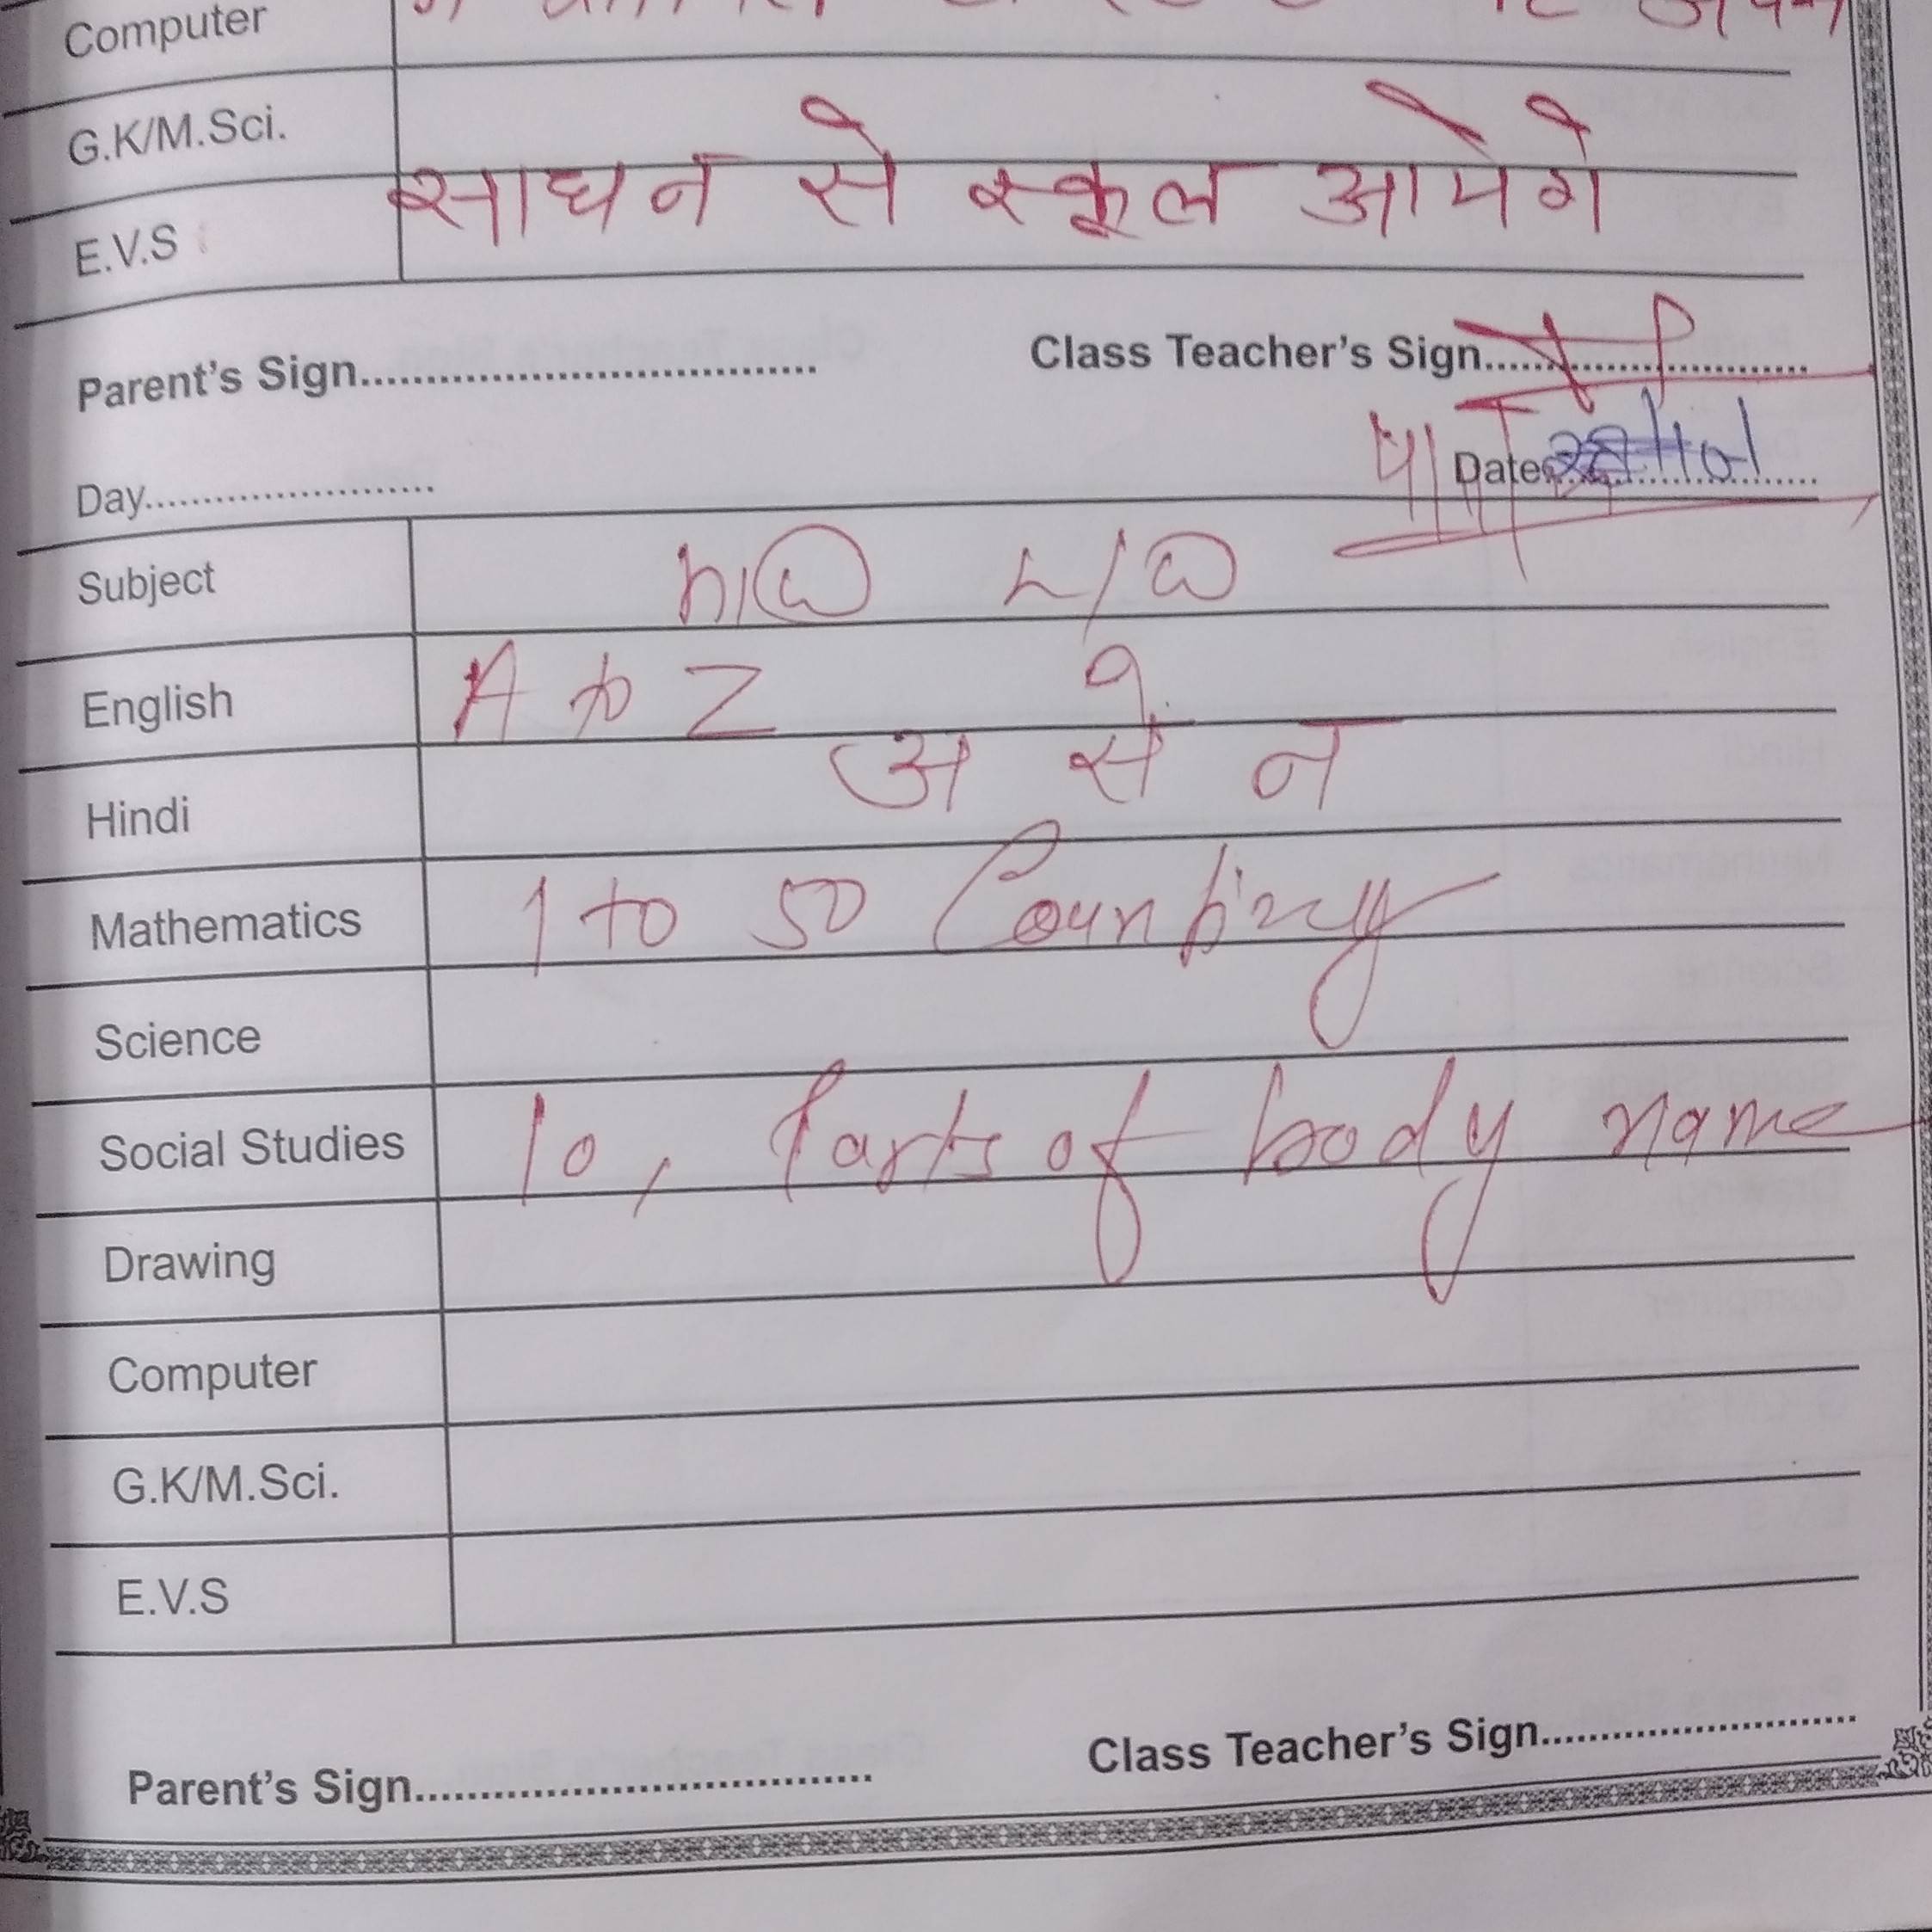 Computer
G.K/M.Sci.
E.V.S साधन से स्कूल आयेगे
Parent's Sign.................................... Class Teacher's Sign...........................
Day....................... Date
Subject h/w L/w
English A to Z
Hindi अ से न
Mathematics 1 to 50 Counting
Science
Social Studies 10, Parts of body name
Drawing
Computer
G.K/M.Sci.
E.V.S
Parent's Sign.................................... Class Teacher's Sign...........................